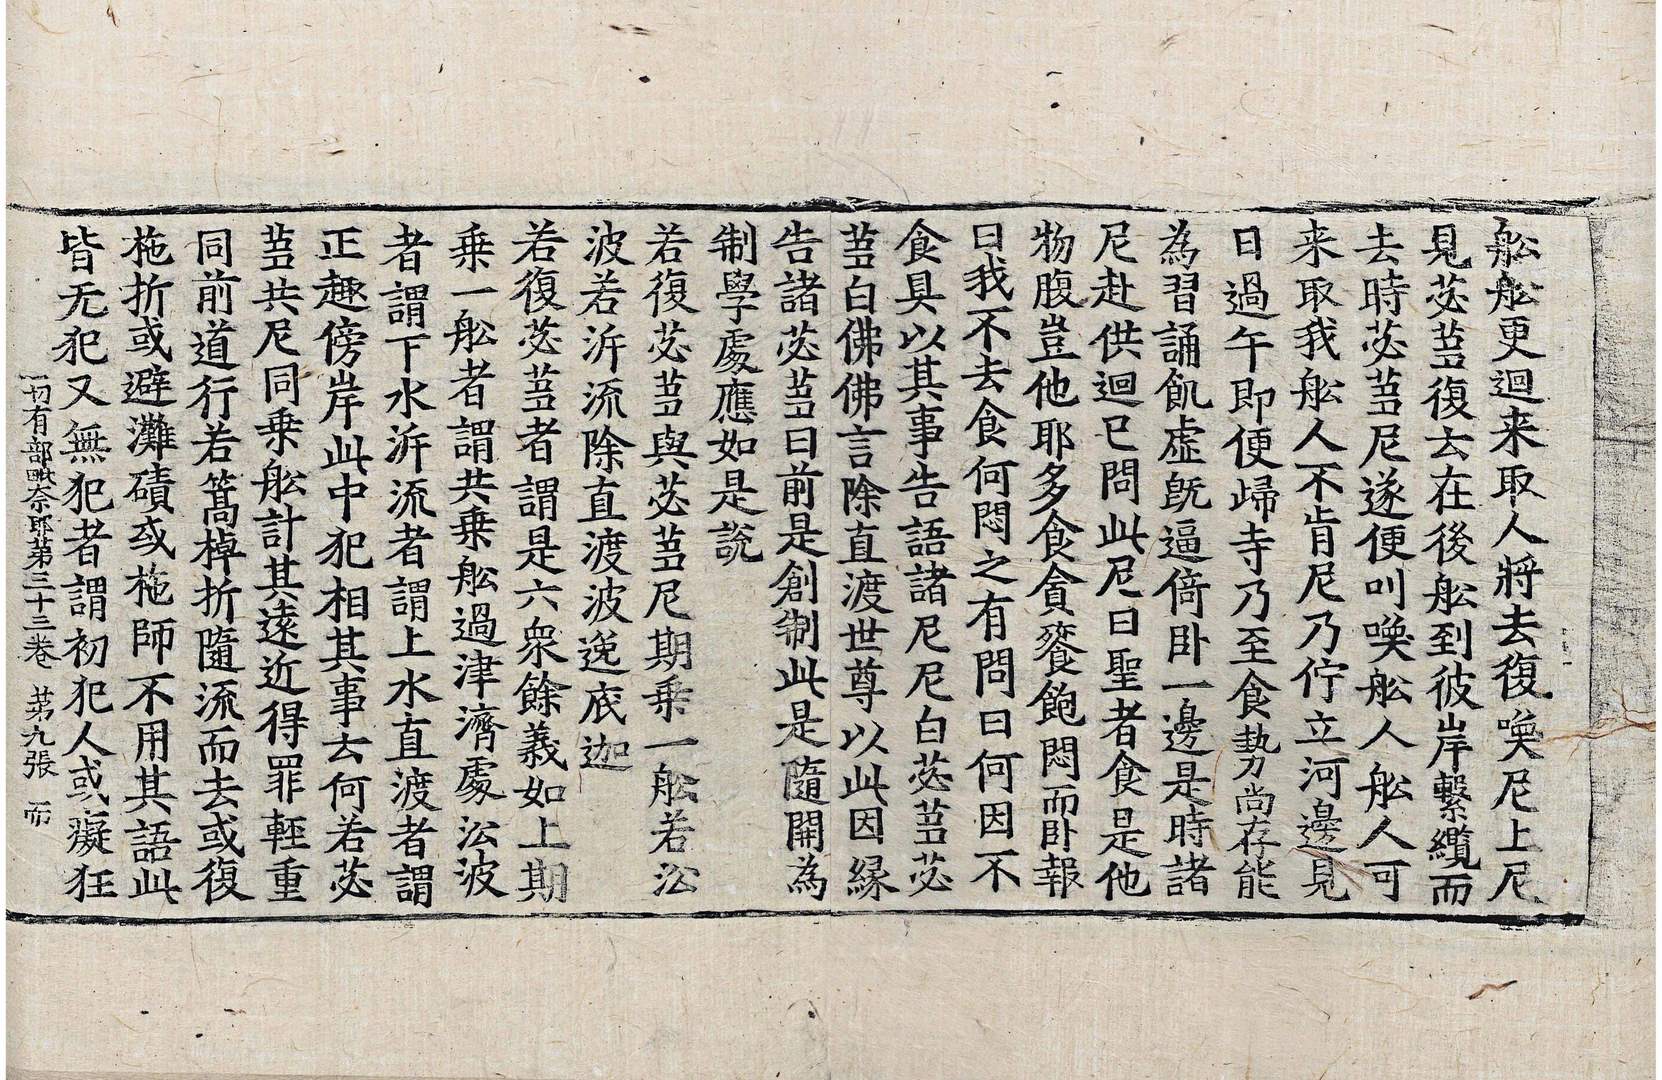 舩舩更迴来取人將去復喚尼上尼
見苾蒭復去在後舩到彼岸繫纜而
去時苾蒭尼遂便叫喚舩人舩人可
来取我舩人不肯尼乃佇立河邊見
日過午即便歸寺乃至食勢尚存能
為習誦飢虛旣逼倚卧一邊是時諸
尼赴供迴已問此尼曰聖者食是他
物腹豈他耶多食食貪餮飽悶而卧報
曰我不去食何悶之有問曰何因不
食具以其事告語諸尼尼白苾蒭苾
蒭白佛佛言除直渡世尊以此因縁
告諸苾蒭曰前是創制此是隨開為
制學處應如是說
若復苾蒭與苾蒭尼期乗一舩若㳂
波若泝流除直渡波逸底迦
若復苾蒭者謂是六衆餘義如上期
乗一舩者謂共乗舩過津濟處㳂波
者謂下水泝流者謂上水直渡者謂
正趣傍岸此中犯相其事云何若苾
蒭共尼同乗舩計其遠近得罪輕重
同前道行若篙棹折隨流而去或復
柂折或避灘磧或柂師不用其語此
皆无犯又無犯者謂初犯人或癡狂
一切有部毗奈耶苐三十三卷 苐九張 而